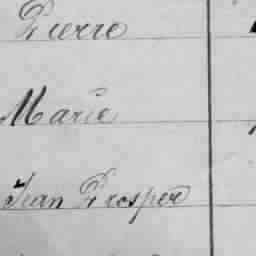 Pierre
Marie
Jean Prosper